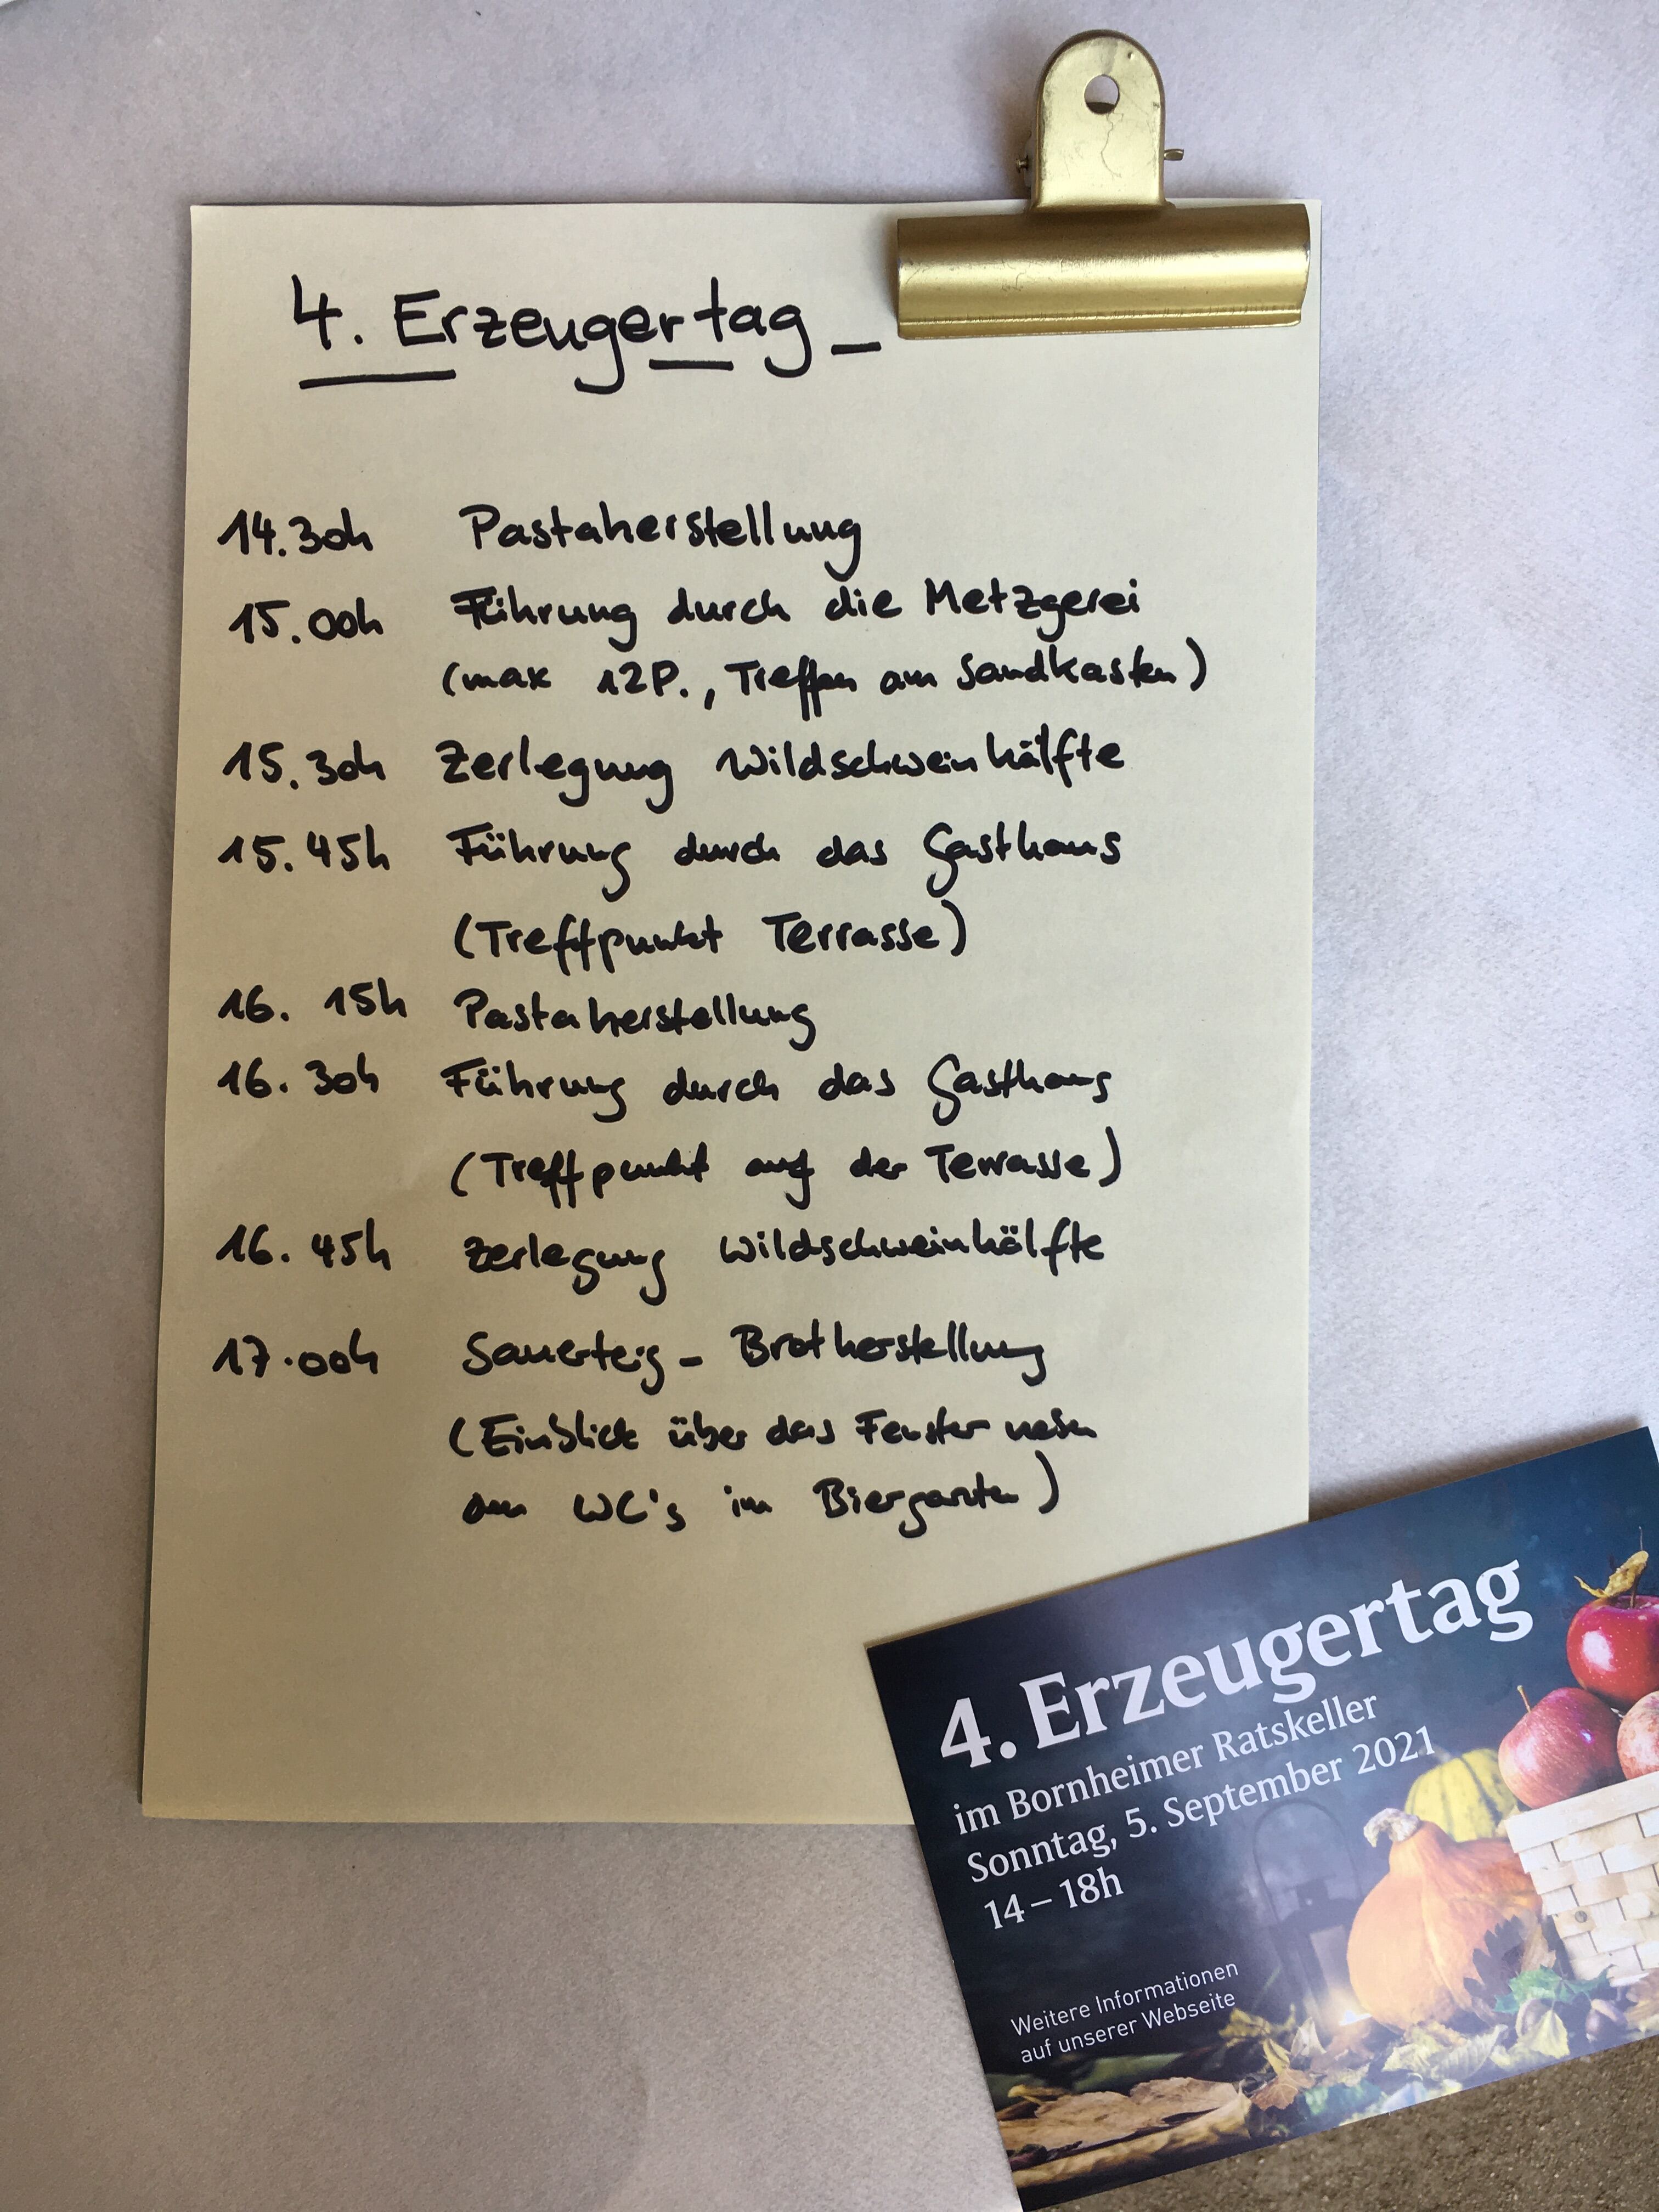 4. Erzeugertag
14.30h Pastaherstellung
15.00h Führung durch die Metzgerei
(max 12P., Treffen am Sandkasten)
15.30h Zerlegung Wildschweinhälfte
15.45h Führung durch das Gasthaus
(Treffpunkt Terrasse)
16.15h Pastaherstellung
16.30h Führung durch das Gasthaus
(Treffpunkt auf der Terrasse)
16.45h Zerlegung Wildschweinhälfte
17.00h Sauerteig-Brotherstellung
(Einblick über das Fenster neben
den WC's im Biergarten)
4. Erzeugertag
im Bornheimer Ratskeller
Sonntag, 5. September 2021
14 – 18h
Weitere Informationen
auf unserer Webseite